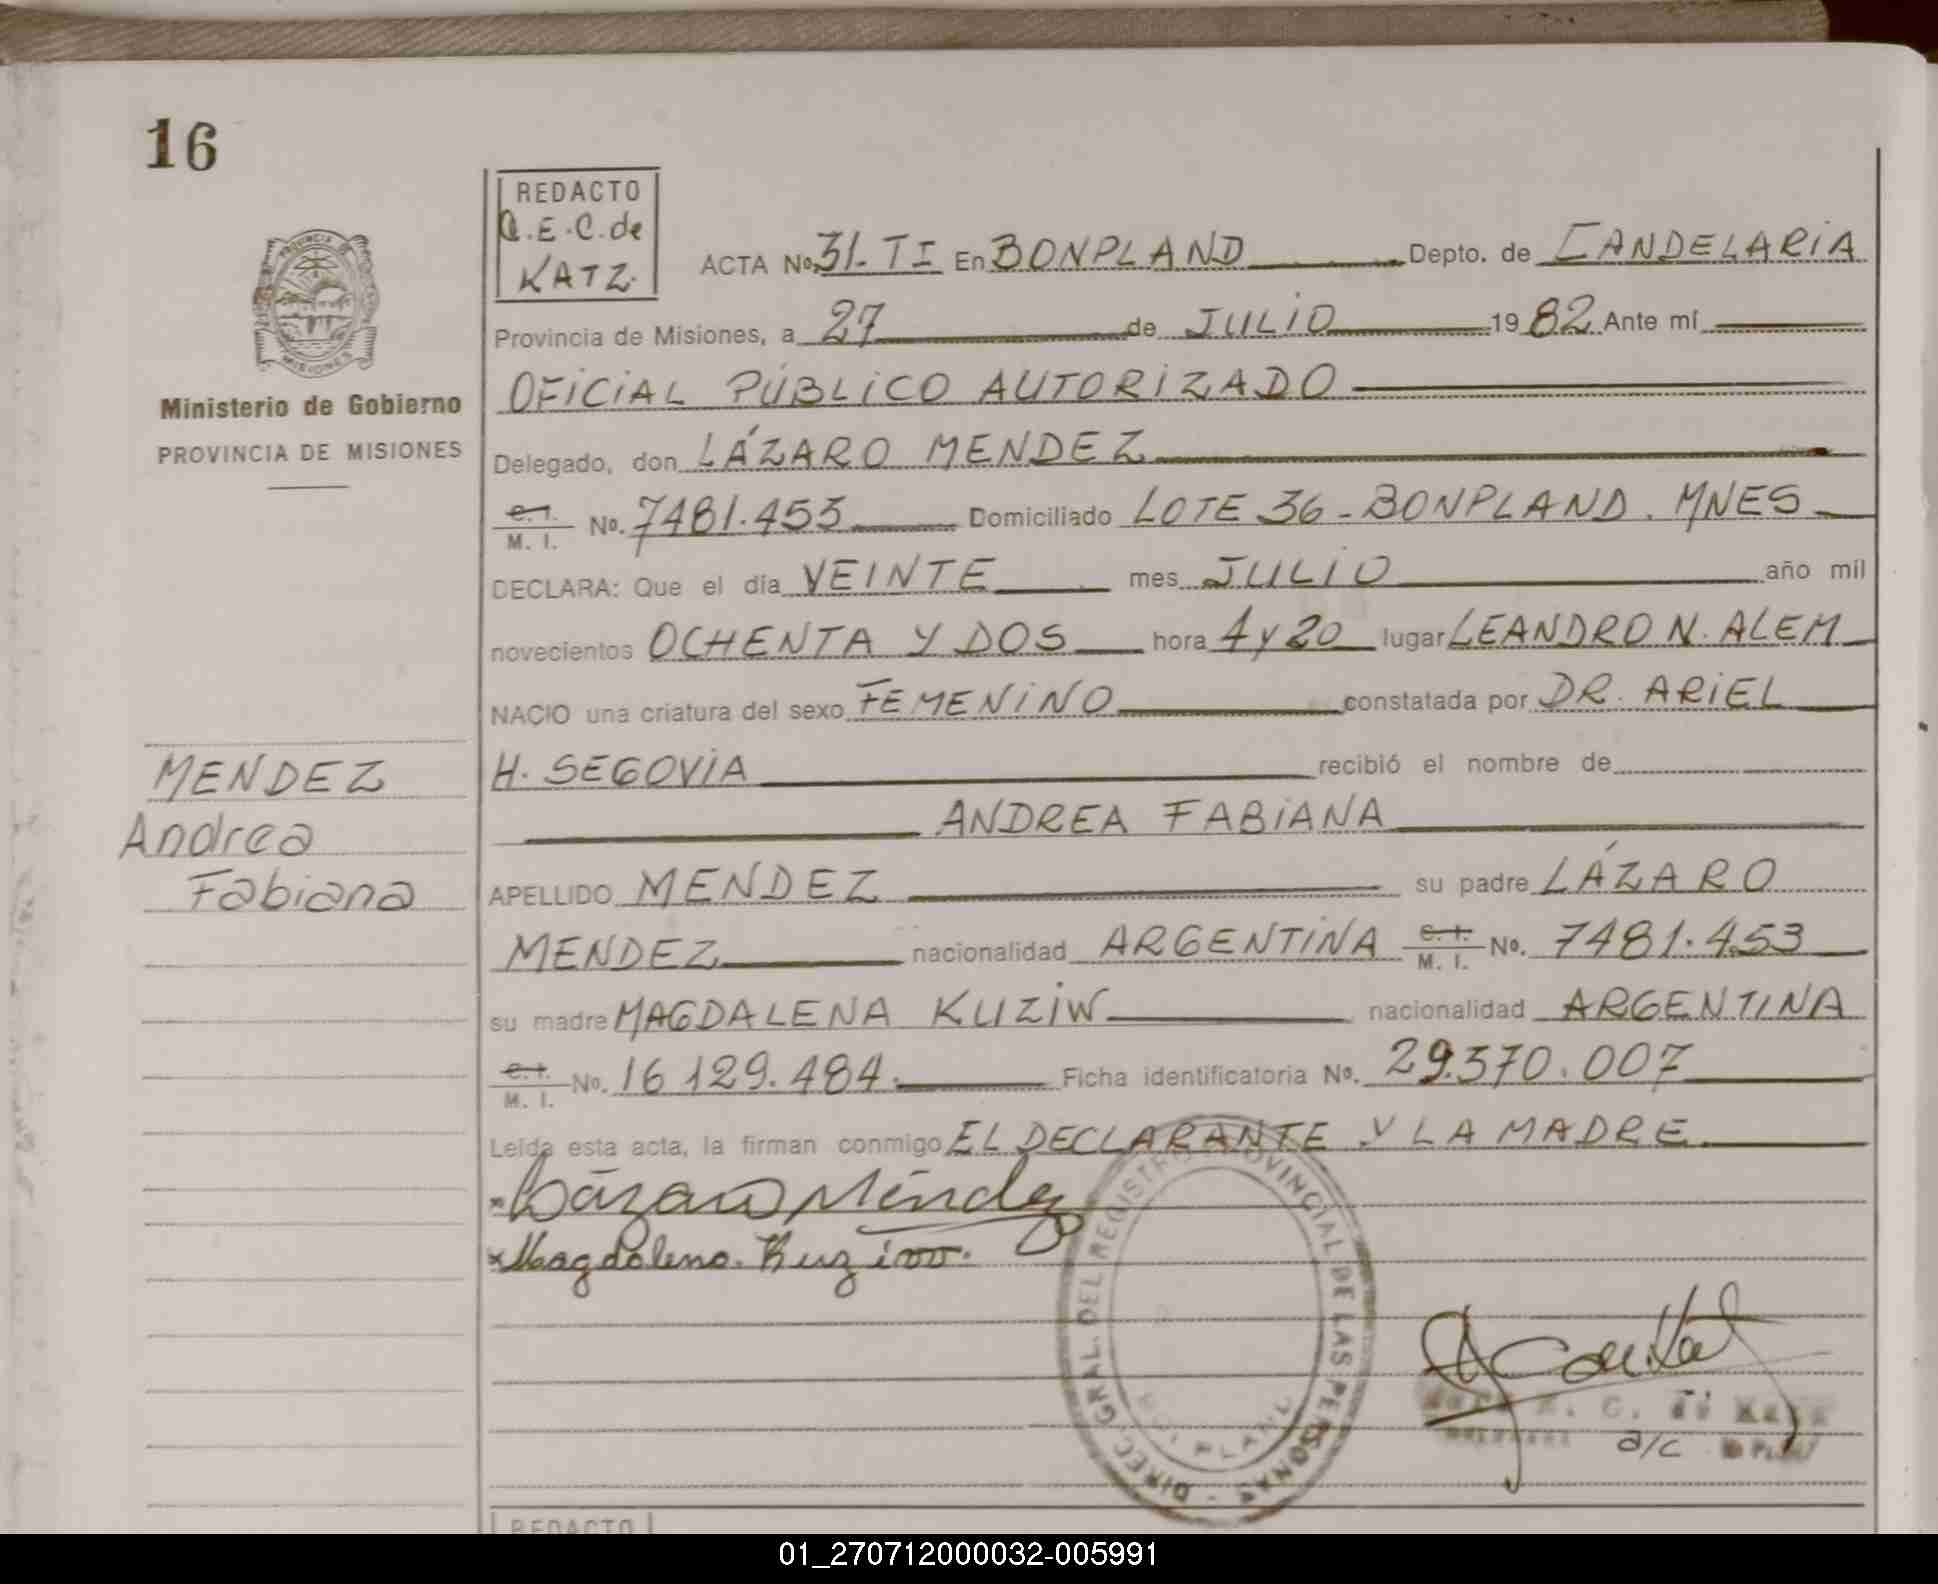 16
REDACTO
C.E.C. de
KATZ.
ACTA No. 31. TI En BONPLAND Depto. de CANDELARIA
Provincia de Misiones, a 27 de JULIO 1982 Ante mí
OFICIAL PÚBLICO AUTORIZADO
Ministerio de Gobierno
PROVINCIA DE MISIONES
Delegado, don LÁZARO MENDEZ
C. I. M. I. No. 7481.453 Domiciliado LOTE 36 - BONPLAND. MNES
DECLARA: Que el día VEINTE mes JULIO año mil
novecientos OCHENTA Y DOS hora 4 y 20 lugar LEANDRO N. ALEM
NACIO una criatura del sexo FEMENINO constatada por DR. ARIEL
H. SEGOVIA recibió el nombre de
ANDREA FABIANA
MENDEZ
Andrea
Fabiana
APELLIDO MENDEZ su padre LÁZARO
MENDEZ nacionalidad ARGENTINA C. I. M. I. No. 7481.453
su madre MAGDALENA KUZIW nacionalidad ARGENTINA
C. I. M. I. No. 16 129.484. Ficha identificatoria No. 29.370.007
Leida esta acta, la firman conmigo EL DECLARANTE Y LA MADRE.
Lázaro Méndez
Magdalena Kuziw.
DIREC. GRAL. DEL REGISTRO PROVINCIAL DE LAS PERSONAS
a/c
REDACTO
01_270712000032-005991